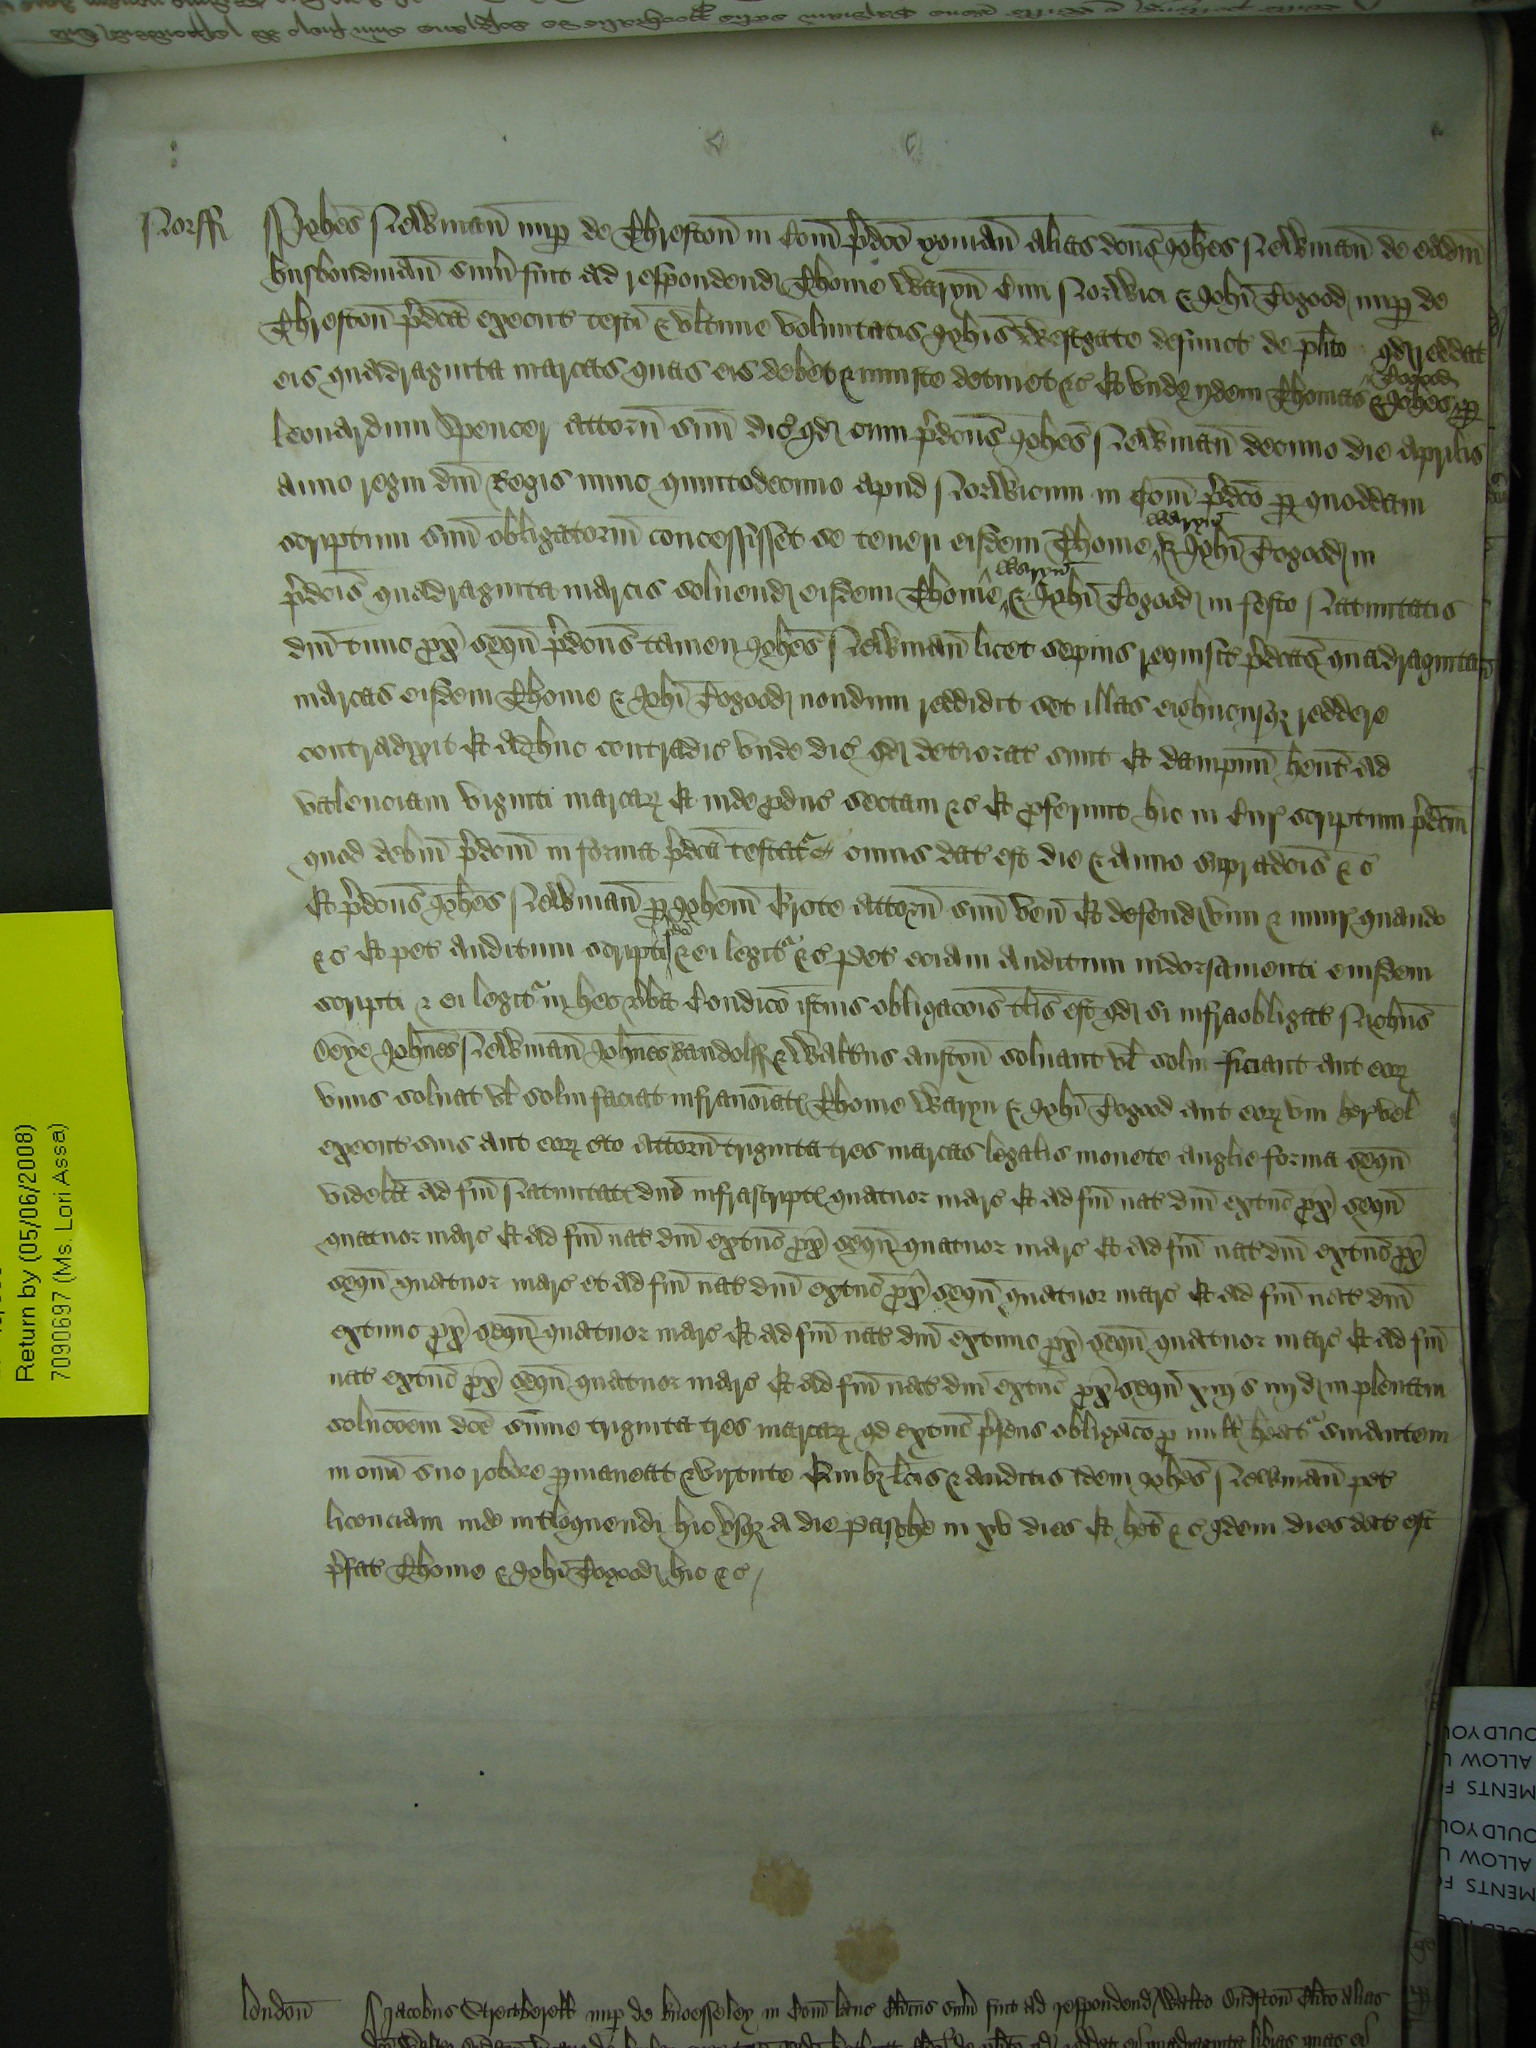 Norff Johes Newman nup de Threston in Com pdco yoman alias dcus Johes Newman de eadm
husbondman sum fuit ad respondend Thome Waryn Civi Norwici & Johi Togood nup de
Threston pdca execut testi & ultime voluntatis Johis Westgate defunct de plito qd reddat
Togood
eis quadraginta marcas quas eis debet & iniuste detinet &c Et unde ijdem Thomas & Johes p
leonardum Spencer attorn suum dic qd cum pdcus Johes Newman decimo die aprilis
anno regni dni Regis nunc quintodecimo apud Norwicum in Com pdco p quoddam
Waryn
scriptum suum obligatorium concessisset se teneri eisdem Thome & Johi Togood in
Waryn
pdcis quadraginta marcis solvend eisdem Thome & Johi Togood in festo Nativitatis
dni tunc px sequ pdcus tamen Johes Newman licet sepius requisit pdcas quadraginta
marcas eisdem Thome & Johi Togood nondum reddidit set illas eis hucusq reddere
contradixit Et adhuc contradic unde dic qd deteriorat sunt Et dampnu hent ad
valenciam viginti marcar Et inde pduc sectam &c Et proferunt hic in Cur scriptum pdcm
quod debm pdcm in forma pdca testat cuius dat est die & anno supradcis &c
Et pdcus Johes Newman p Johem Grote attorn suum ven Et defend vim & iniur quando
pdci
&c Et pet auditum scripti & ei legit &c Pet eciam auditum indorsamenti eiusdem
scripti & ei legit in hec vba Condico istius obligacois tlis est qd si infraobligat Nichus
Johnes Newman Johnes Randolff & Waltus austyn solvant vl solvi faciant aut eor
unus solvat vl solvi faciat infranoiat Thome Waryn & Johi Togood aut eor uni her vel
execut suis aut eor cto attorn triginta tres marcas legalis monete anglie forma sequ
videlt ad fm Nativitat dni infrascript quatuor marc Et ad fm nat dni extuc px sequ
quatuor marc Et ad fm nat dni extuc px sequ quatuor marc Et ad fm nat dni extuc px
sequ quatuor marc et ad fm nat dni extuc px sequ quatuor marc Et ad fm nat dni
extunc px sequ quatuor marc Et ad fm nat dni extunc px sequ quatuor marc Et ad fm
nat extuc px sequ quatuor marc Et ad fm nat dni extuc px sequ xiij s iiij d in plenam
solucoem dce sume triginta tres marcar qd extuc psens obligaco p null heat sinautem
in omi suo robore pmaneat & virtute Quibz lcis & auditis idem Johes Newman pet
licenciam inde intloquendi hic usq a die Pasche in xv dies Et het &c Idem dies dat est
pfat Thome & Johi Togood hic &c
london Jacobus nup de knoesseley in Com lanc Clicus sum fuit ad respondend Walto Clico alias
Return by (05/06/2008)
7090697 (Ms. Lori Assa)
OULD YOU
ALLOW
MENTS
OULD YOU
ALLOW
MENTS